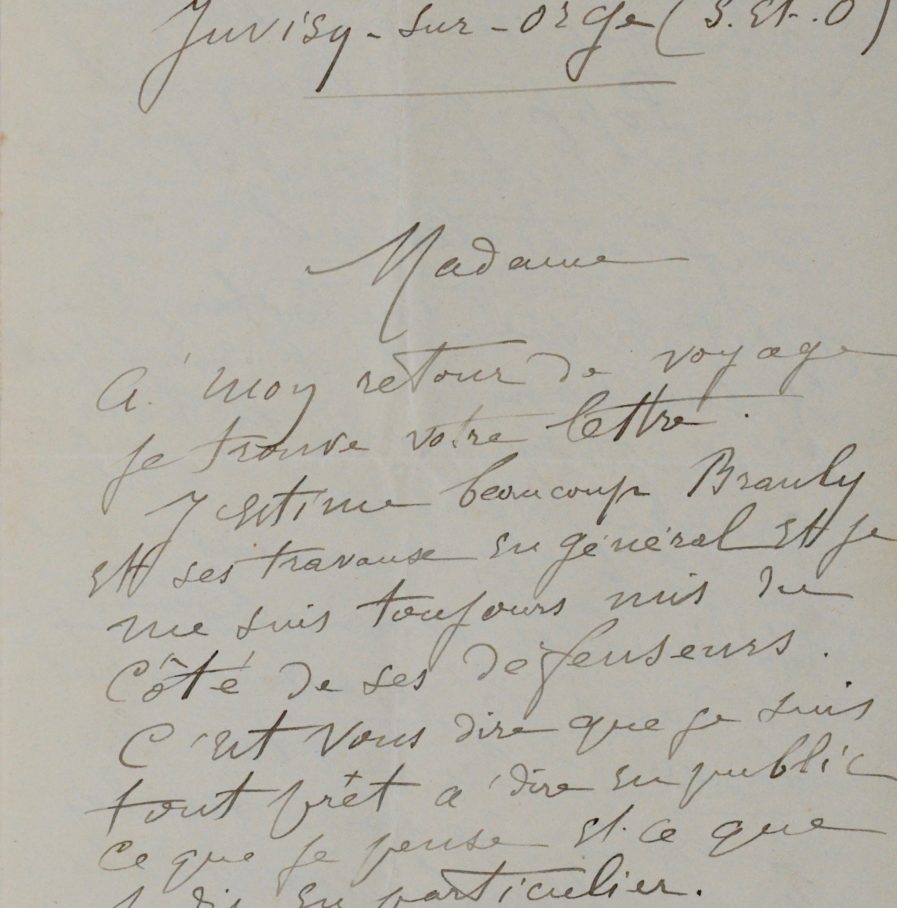 Juvisy-sur-Orge (S. et. O)
Madame
A mon retour de voyage
je trouve votre lettre.
J'estime beaucoup Branly
et ses travaux en général et je
me suis toujours mis du
côté de ses défenseurs.
C'est vous dire que je suis
tout prêt à dire en public
ce que je pense et ce que
je dis en particulier.